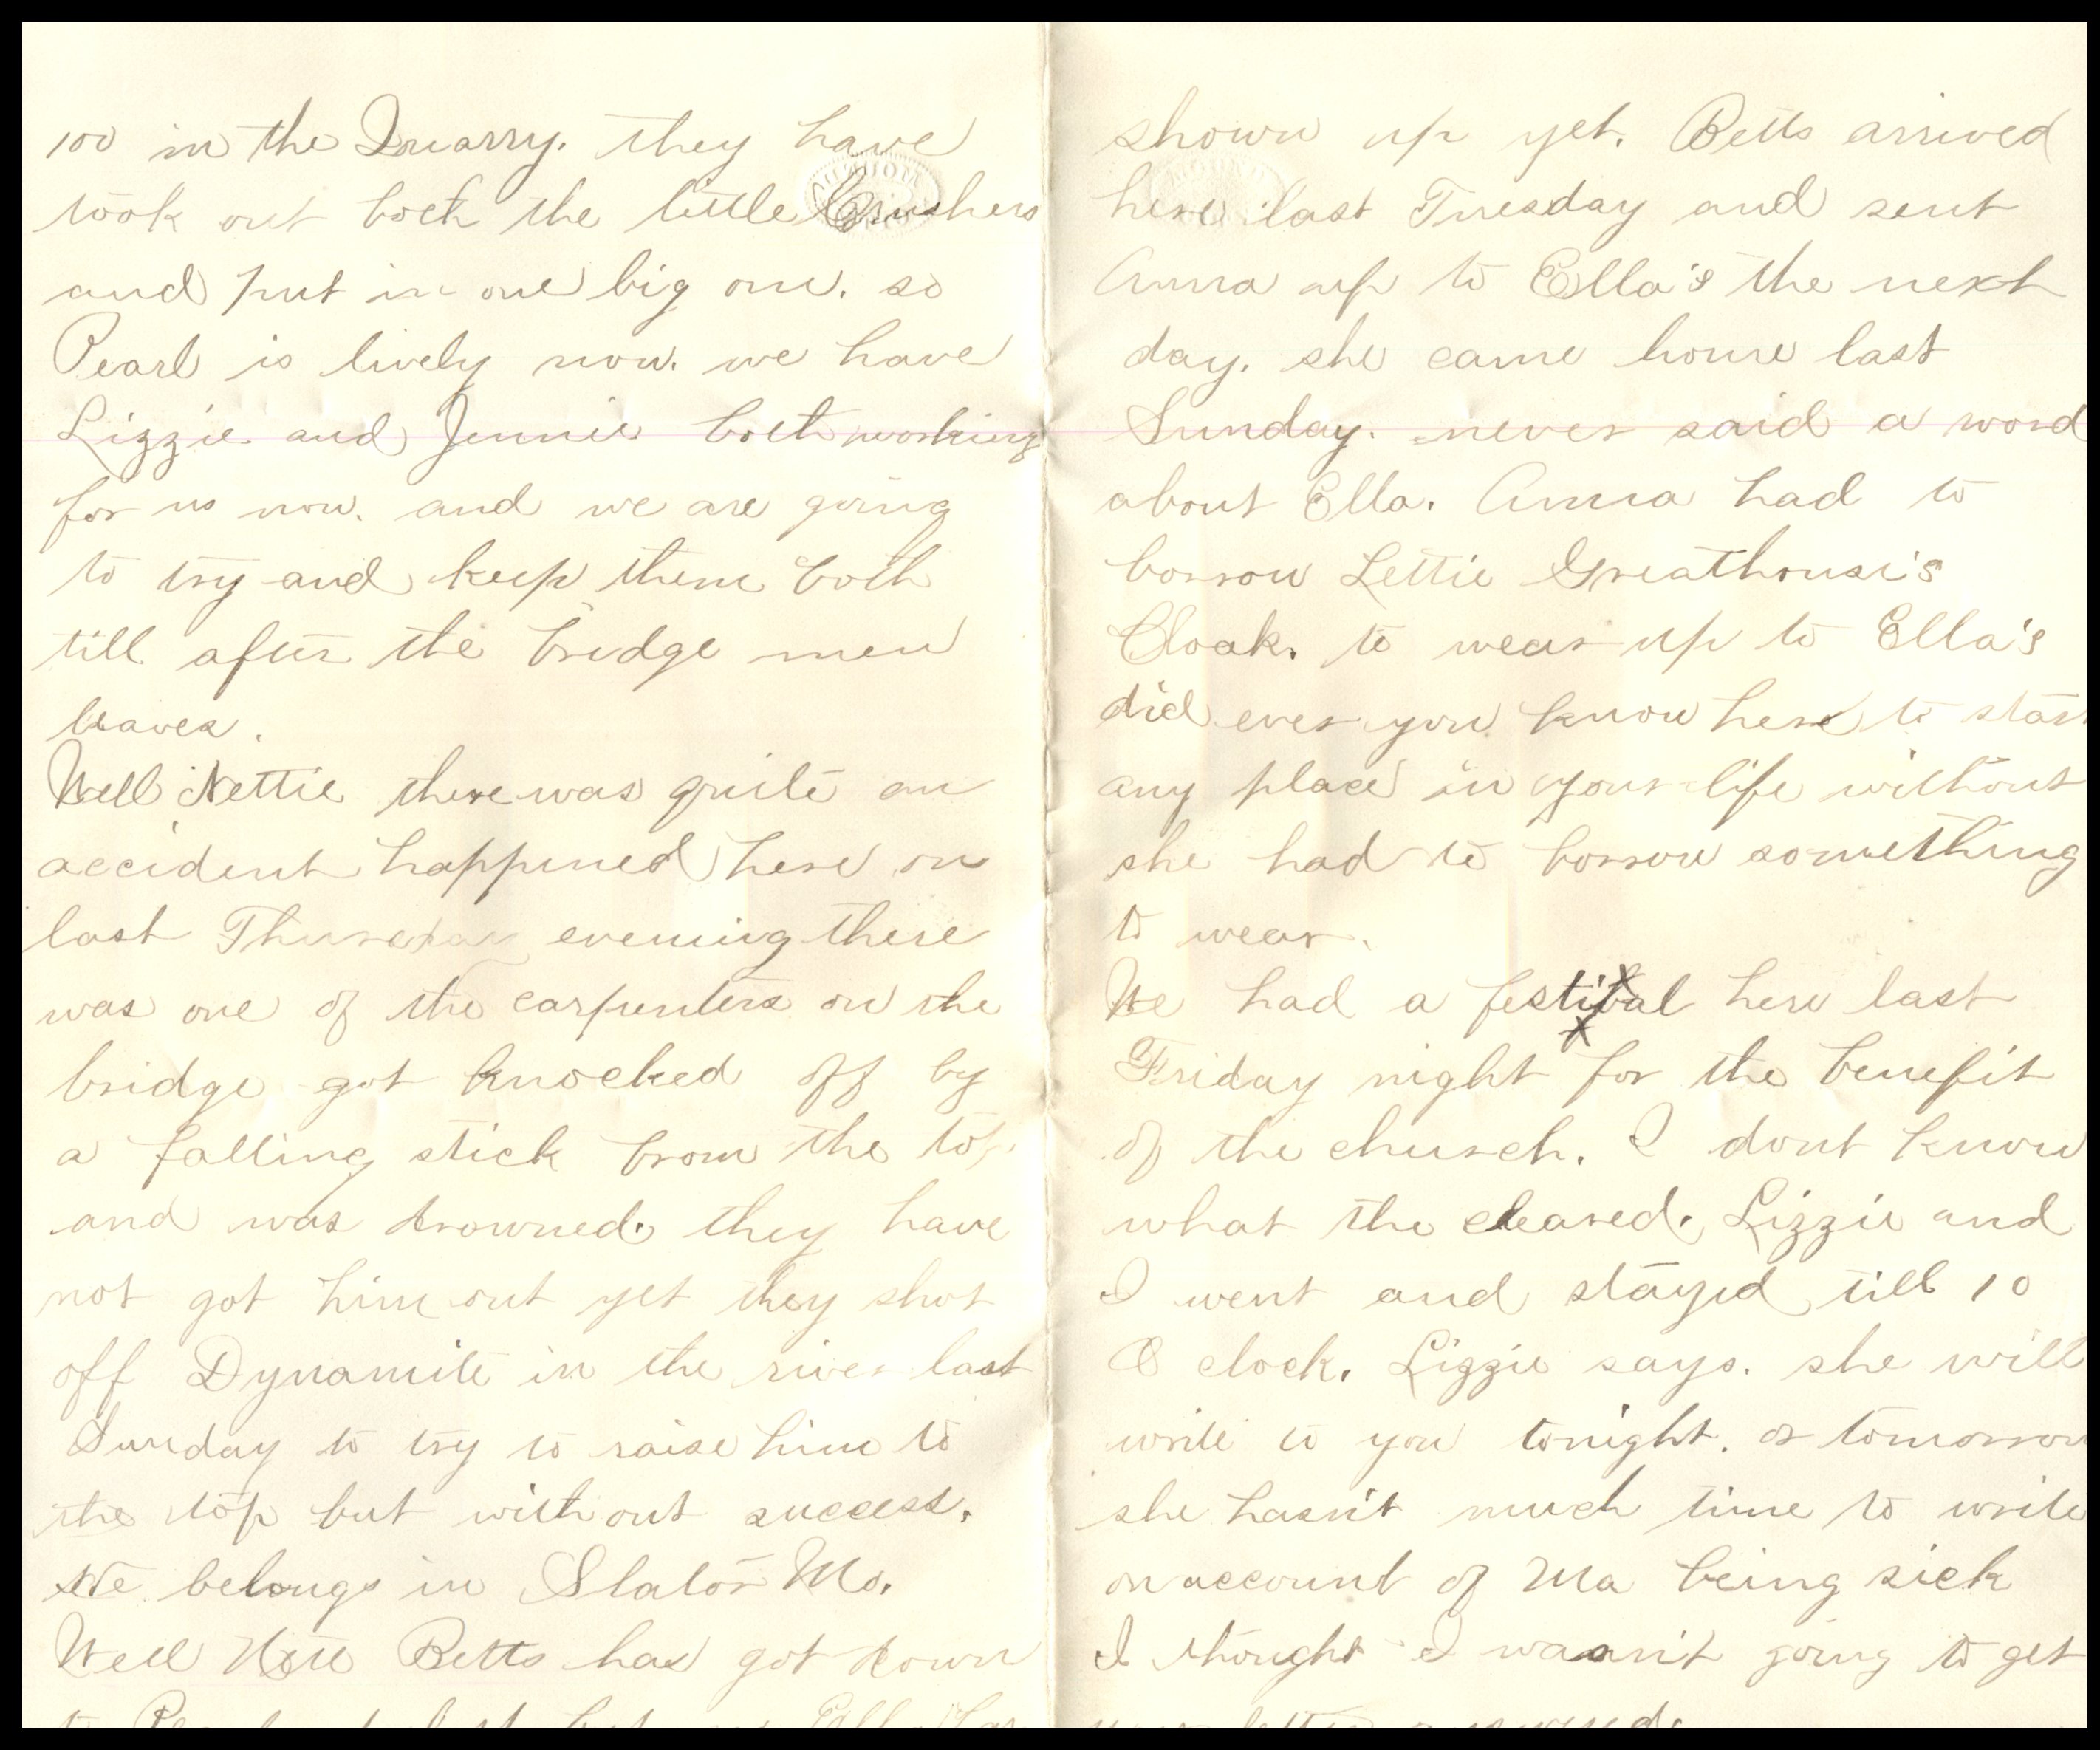 100 in the Quarry. they have
took out both the little Crushers
and put in one big one. so
Pearl is lively now. we have
Lizzie and Jennie both working
for us now. and we are going
to try and keep them both
till after the bridge men
leaves.
Well Nettie there was quite an
accident happined here on
last Thursday evening there
was one of the carpenters on the
bridge got knocked off by
a falling stick from the top
and was drowned. they have
not got him out yet they shot
off Dynamite in the river last
Sunday to try to raise him to
the top but without success.
He belongs in Slator Mo.
Well Nett Betts has got down
to Pearl at last but no Ella has
shown up yet. Betts arrived
here last Tuesday and sent
Anna up to Ella's the next
day. she came home last
Sunday. never said a word
about Ella. Anna had to
borrow Lettie Greathouse's
Cloak. to wear up to Ella's
did ever you know her to start
any place in your life without
she had to borrow something
to wear.
We had a festival here last
Friday night for the benefit
of the church. I dont know
what the cleared. Lizzie and
I went and stayed till 10
O clock. Lizzie says. she will
write to you tonight. or tomorrow
she hasn't much time to write
on account of Ma being sick
I thought I wasn't going to get